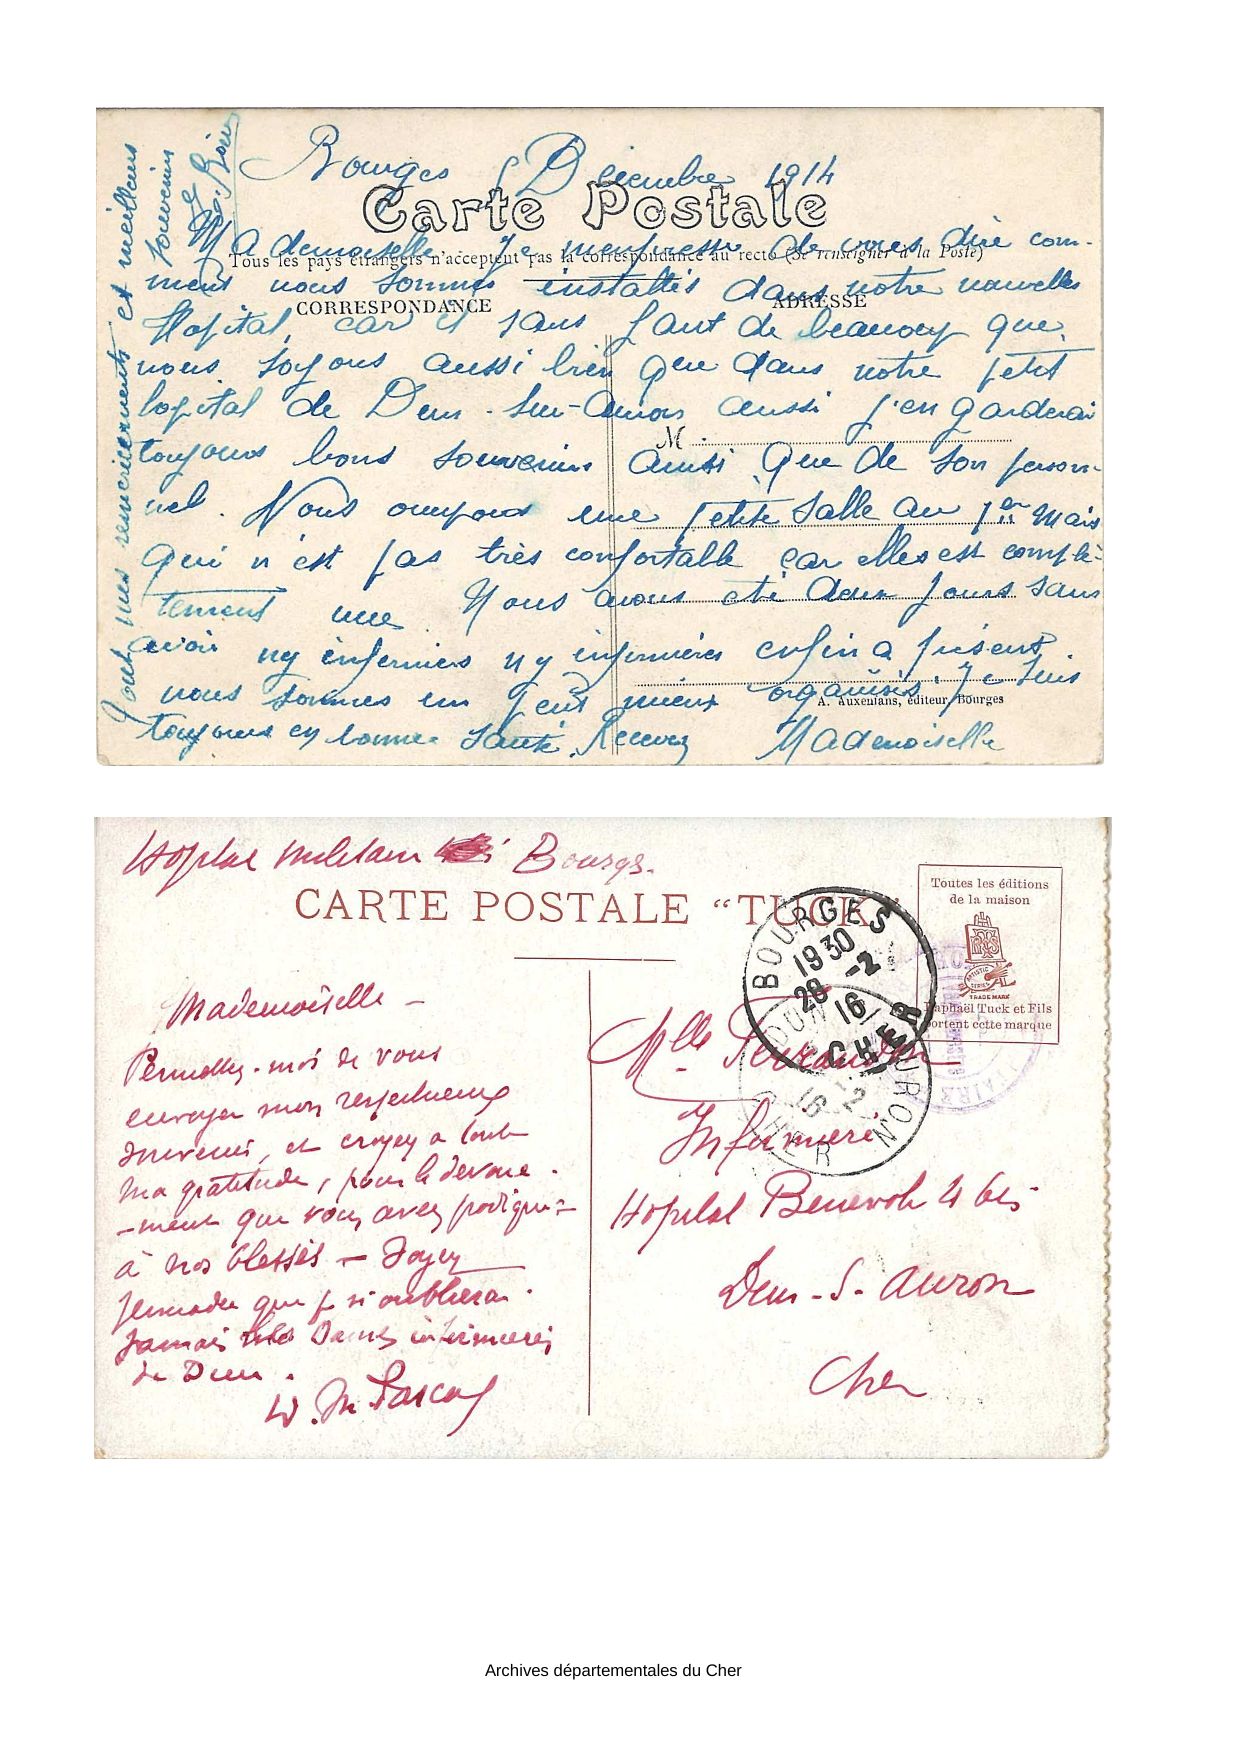 Bourges 5 Décembre 1914
Carte Postale
Mademoiselle Je m'enpresse de vous dire com-
Tous les pays étrangers n'acceptent pas la correspondance au recto (Se renseigner à la Poste)
ment nous sommes installés dans notre nouvelle
CORRESPONDANCE
ADRESSE
Hopital, car il sans faut de beaucoup que
nous soyons aussi bien que dans notre petit
hopital de Dun-sur-Auron aussi j'en garderai
M
toujours bons souvenirs ainsi que de son person-
nel. Nous occupons une petite salle au 1er mais
qui n'est pas très confortable car elles est complè-
tement nue Nous avons été deux jours sans
avoir ny infermiers ny infirmières enfin a présent
nous sommes un peut mieux organisés. Je suis
A. Auxenfans, éditeur, Bourges
toujours en bonne santé. Recevez Mademoiselle
tout mes remerciements et meilleurs
souvenirs
Hopital Militaire Bourges.
CARTE POSTALE "TUCK"
Toutes les éditions
de la maison
ARTISTIC
SERIES
TRADE MARK
Raphaël Tuck et Fils
portent cette marque
BOURGES
1930
28 -2
16
CHER
DUN AURON
2
16
CHER
Mademoiselle -
Permettez-moi de vous
envoyer mon respectueux
souvenir, et croyez a toute
ma gratitude, pour le devoue-
-ment que vous avez prodigué
à nos blessés - Soyez
persuadée que je n'oublierai
jamais les Dames infirmieres
de Dun.
Mlle
Infirmiere
Hopital Benevole 4 bis
Dun-S-Auron
Cher
Archives départementales du Cher